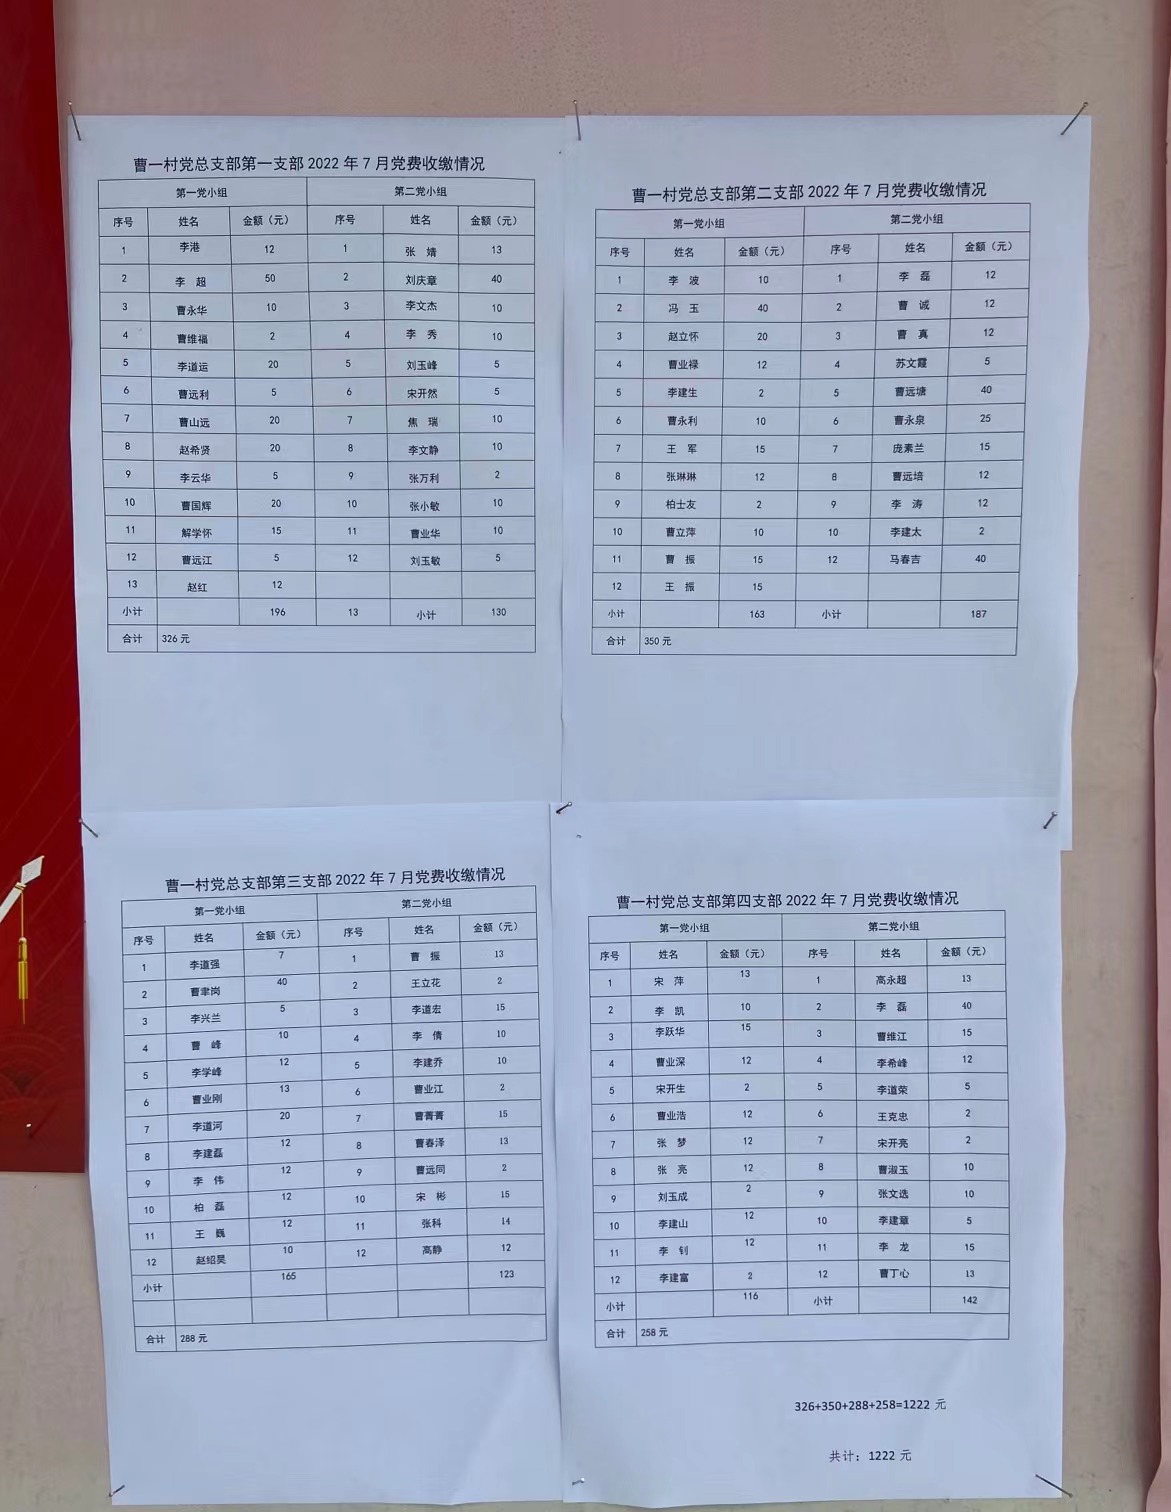 曹一村党总支部第一支部 2022 年 7 月党费收缴情况
第一党小组 第二党小组
序号 姓名 金额（元） 序号 姓名 金额（元）
1 李港 12 1 张 婧 13
2 李 超 50 2 刘庆章 40
3 曹永华 10 3 李文杰 10
4 曹维福 2 4 李 秀 10
5 李道运 20 5 刘玉峰 5
6 曹远利 5 6 宋开然 5
7 曹山远 20 7 焦 瑞 10
8 赵希贤 20 8 李文静 10
9 李云华 5 9 张万利 2
10 曹国辉 20 10 张小敏 10
11 解学怀 15 11 曹业华 10
12 曹远江 5 12 刘玉敏 5
13 赵红 12
小计 196 13 小计 130
合计 326 元
曹一村党总支部第二支部 2022 年 7 月党费收缴情况
第一党小组 第二党小组
序号 姓名 金额（元） 序号 姓名 金额（元）
1 李 波 10 1 李 磊 12
2 冯 玉 40 2 曹 诚 12
3 赵立怀 20 3 曹 真 12
4 曹业禄 12 4 苏文霞 5
5 李建生 2 5 曹远塘 40
6 曹永利 10 6 曹永泉 25
7 王 军 15 7 庞素兰 15
8 张琳琳 12 8 曹远培 12
9 柏士友 2 9 李 涛 12
10 曹立萍 10 10 李建太 2
11 曹 振 15 12 马春吉 40
12 王 振 15
小计 163 小计 187
合计 350 元
曹一村党总支部第三支部 2022 年 7 月党费收缴情况
第一党小组 第二党小组
序号 姓名 金额（元） 序号 姓名 金额（元）
1 李道强 7 1 曹 振 13
2 曹聿岗 40 2 王立花 2
3 李兴兰 5 3 李道宏 15
4 曹 峰 10 4 李 倩 10
5 李学峰 12 5 李建乔 10
6 曹业刚 13 6 曹业江 2
7 李道河 20 7 曹菁菁 15
8 李建磊 12 8 曹春泽 13
9 李 伟 12 9 曹远同 2
10 柏 磊 12 10 宋 彬 15
11 王 巍 12 11 张科 14
12 赵绍昊 10 12 高静 12
小计 165 123
合计 288 元
曹一村党总支部第四支部 2022 年 7 月党费收缴情况
第一党小组 第二党小组
序号 姓名 金额（元） 序号 姓名 金额（元）
1 宋 萍 13 1 高永超 13
2 李 凯 10 2 李 磊 40
3 李跃华 15 3 曹维江 15
4 曹业深 12 4 李希峰 12
5 宋开生 2 5 李道荣 5
6 曹业浩 12 6 王克忠 2
7 张 梦 12 7 宋开亮 2
8 张 亮 12 8 曹淑玉 10
9 刘玉成 2 9 张文选 10
10 李建山 12 10 李建章 5
11 李 钊 12 11 李 龙 15
12 李建富 2 12 曹丁心 13
小计 116 小计 142
合计 258 元
326+350+288+258=1222 元
共计：1222 元